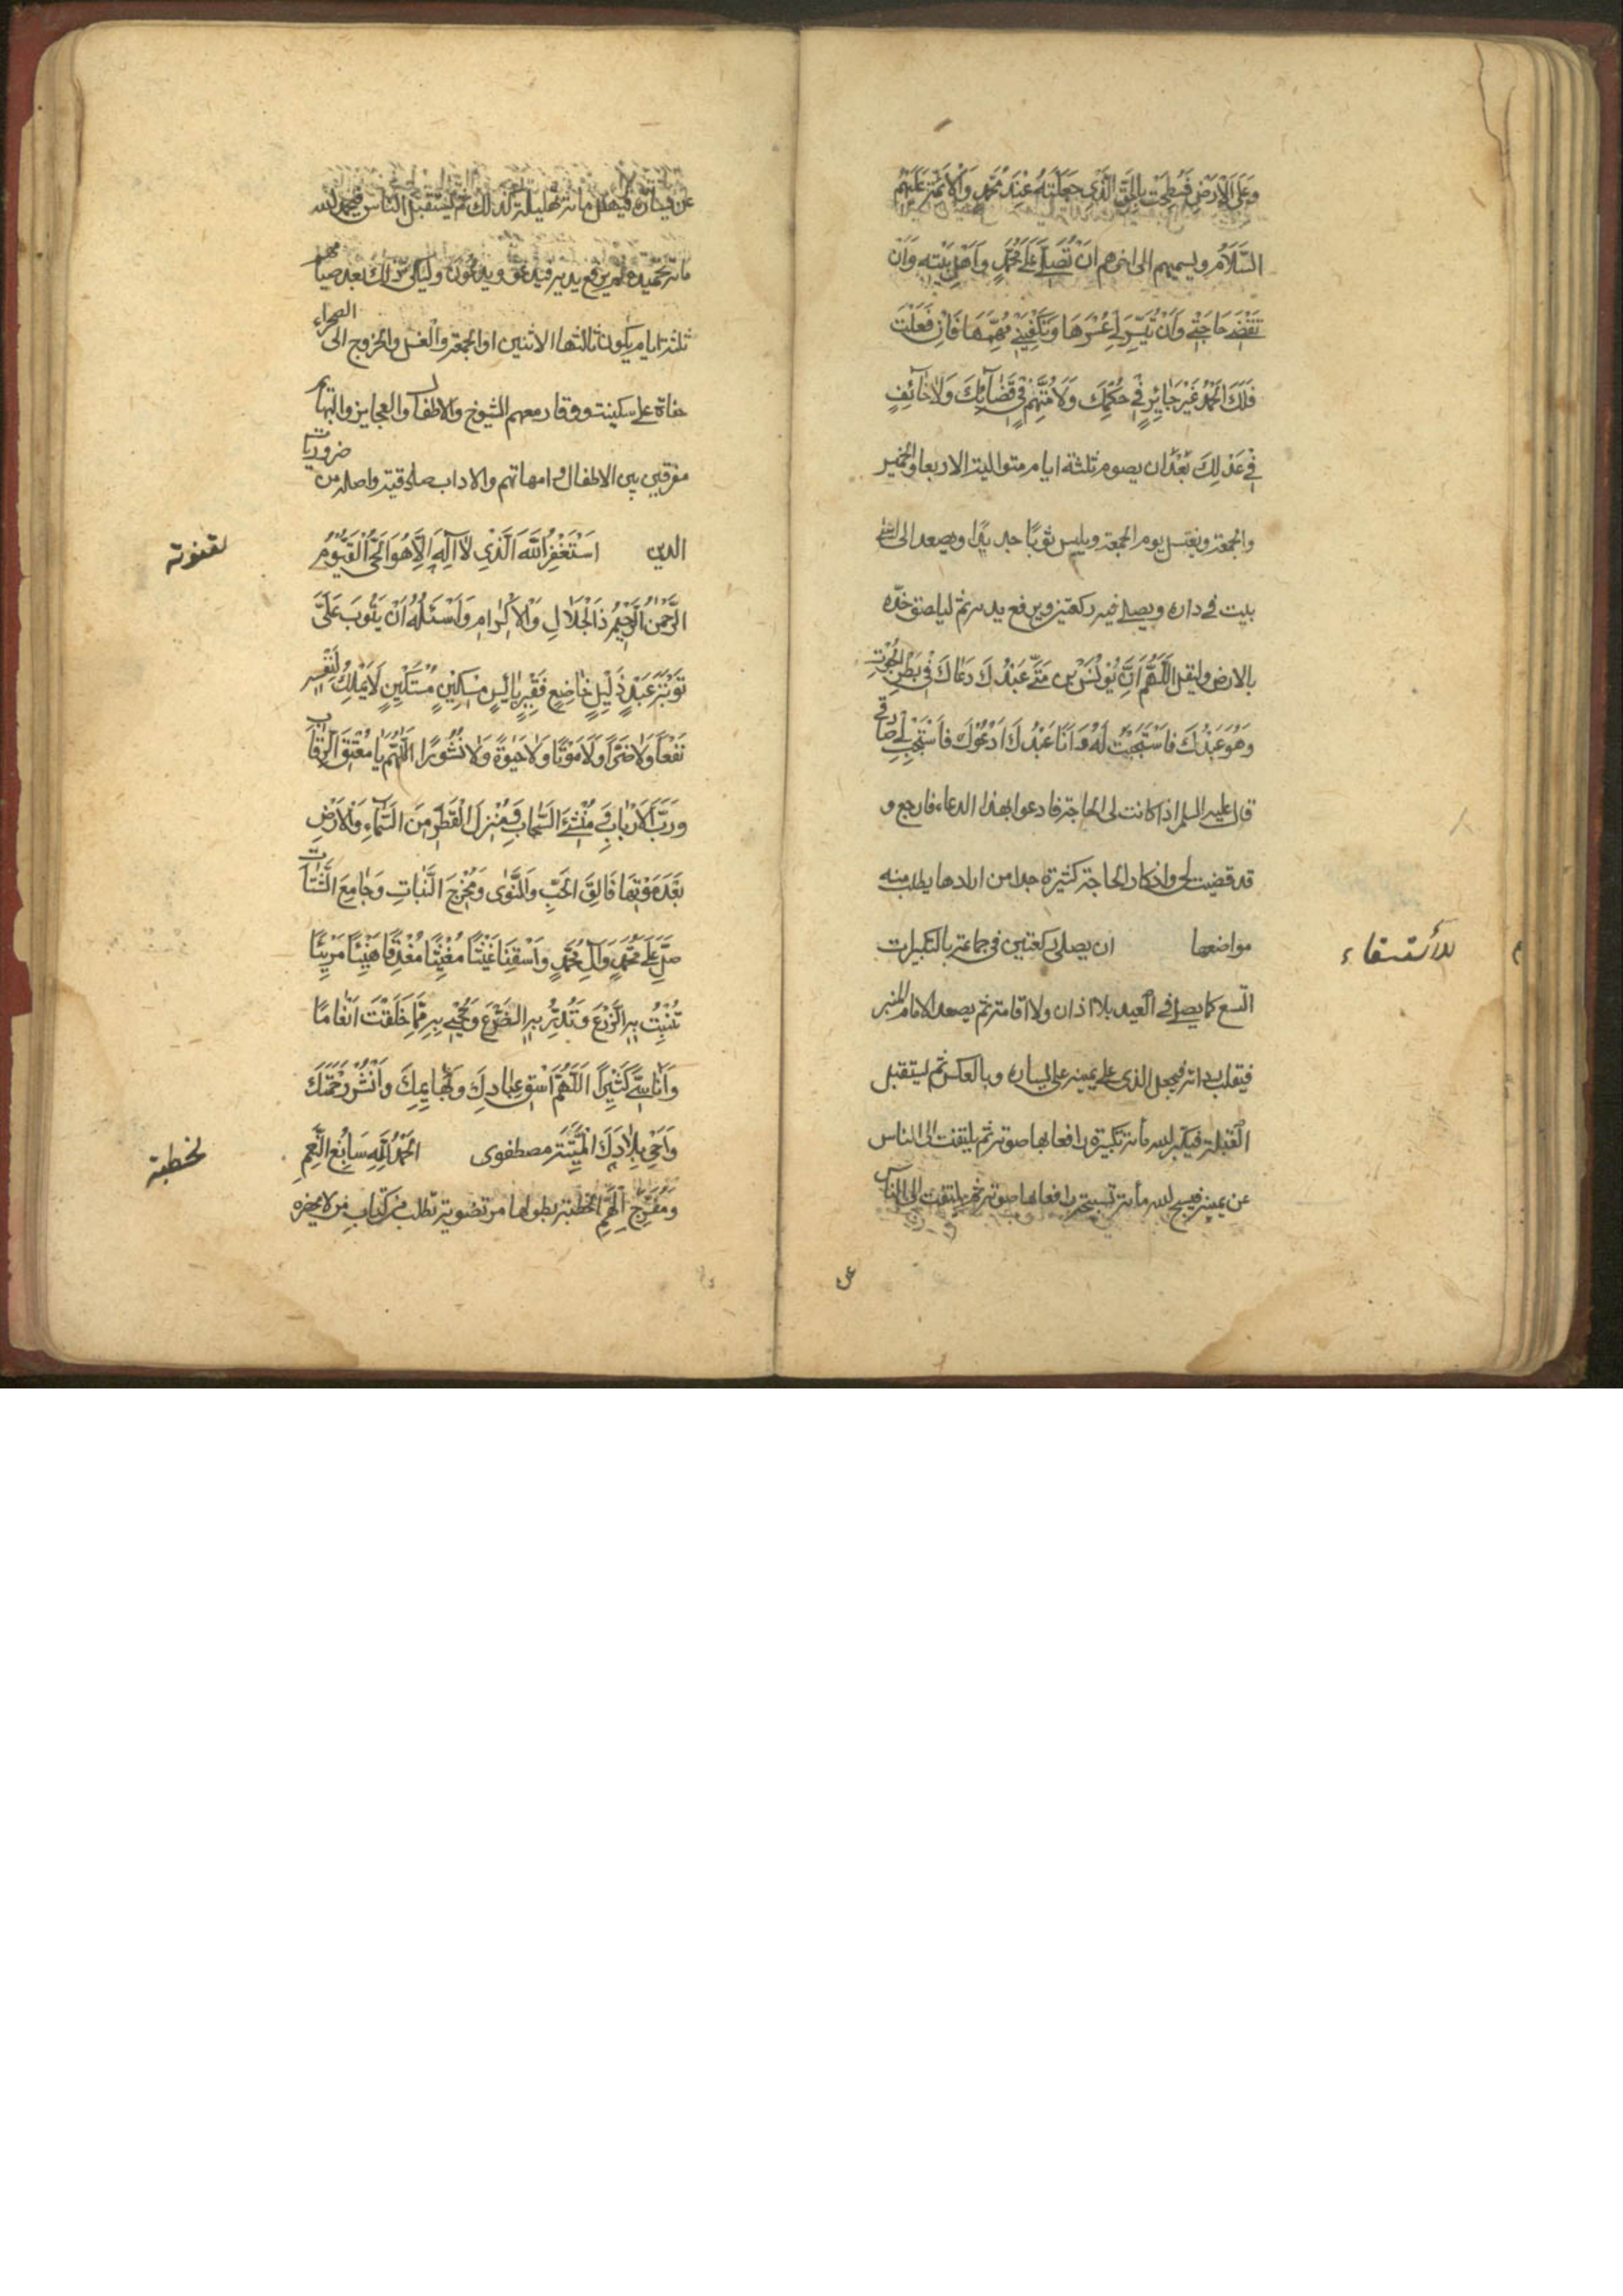 وَعَلَى الْاَرْضِ فَسُطِحَتْ بِالْحَقِّ الَّذِي جَعَلْتَهُ عِنْدَ مُحَمَّدٍ وَالْاَئِمَّةِ عَلَيْهِمُ
السَّلَامُ ويسميهم الى اخرهم اَنْ تُصَلِّيَ عَلَى مُحَمَّدٍ وَاَهْلِ بَيْتِهِ وَاَنْ
تَقْضِيَ حَاجَتِي وَاَنْ تُيَسِّرَ لِي عُسْرَهَا وَتَكْفِيَنِي مُهِمَّهَا فَاِنْ فَعَلْتَ
فَلَكَ الْحَمْدُ غَيْرَ جَائِرٍ فِي حُكْمِكَ وَلَا مُتَّهَمٍ فِي قَضَائِكَ وَلَا حَائِفٍ
فِي عَدْلِكَ بَعْدَ ان يصوم ثلثة ايام متوالية الاربعا والخميس
والجمعة ويغتسل يوم الجمعة ويلبس ثوبًا جديدًا ويصعد الى اعلى
بيت في داره ويصلى فيه ركعتين ويرفع يديه ثم ليلصق خدّه
بالارض وليقل اَللّٰهُمَّ اِنَّ يُونُسَ بْنَ مَتَّى عَبْدَكَ دَعَاكَ فِي بَطْنِ الْحُوتِ
وَهُوَ عَبْدُكَ فَاسْتَجَبْتَ لَهُ وَاَنَا عَبْدُكَ اَدْعُوكَ فَاسْتَجِبْ لِي
قال عليه السلم اذا كانت لى الحاجة فادعوا بهذا الدعاء فارجع و
قد قضيت لى واذكار الحاجة كثيرة جدا من ارادها يطلب منه
مواضعها ان يصلى ركعتين في جماعة بالتكبيرات
للأستسقاء
التسع كما يصلى في العيد بلا اذان ولا اقامة ثم يصعد الامام المنبر
فيقلب رداءه فيجعل الذى على يمينه على يساره وبالعكس ثم ليستقبل
القبلة فيكبر لله مأة تكبيرة رافعا بها صوته ثم يلتفت الى الناس
عن يمينه فيسبح لله مأة تسبيحة رافعا بها صوته ثم يلتفت الى الناس
عن
عن يساره فيهلل مأة تهليلة كذلك ثم ليستقبل الناس فيحمد لله
مأة تحميدة ثم يرفع يديه فيدعو ويدعون وليكن ذلك بعد صيامهم
ثلثة ايام يكون ثالثها الاثنين او الجمعة والغسل والخروج الى الصحراء
حفاة على سكينة ووقار معهم الشيوخ والاطفال والعجايز والبهائم
مفرقين بين الاطفال وامهاتهم والاداب صادقية واصله من ضروريات
الدين اَسْتَغْفِرُ اللّٰهَ الَّذِي لَا اِلٰهَ اِلَّا هُوَ الْحَيُّ الْقَيُّومُ
لقنوته
الرَّحْمٰنُ الرَّحِيْمُ ذَا الْجَلَالِ وَالْاِكْرَامِ وَاَسْئَلُهُ اَنْ يَتُوبَ عَلَيَّ
تَوْبَةَ عَبْدٍ ذَلِيْلٍ خَاضِعٍ فَقِيْرٍ بَائِسٍ مِسْكِيْنٍ مُسْتَكِيْنٍ لَا يَمْلِكُ لِنَفْسِهِ
نَفْعًا وَلَا ضَرًّا وَلَا مَوْتًا وَلَا حَيٰوةً وَلَا نُشُورًا اَللّٰهُمَّ يَا مُعْتِقَ الرِّقَابِ
وَرَبَّ الْاَرْبَابِ وَمُنْشِئَ السَّحَابِ وَمُنْزِلَ الْقَطْرِ مِنَ السَّمَاءِ وَالْاَرْضِ
بَعْدَ مَوْتِهَا فَالِقَ الْحَبِّ وَالنَّوٰى وَمُخْرِجَ النَّبَاتِ وَجَامِعَ الشَّتَاتِ
صَلِّ عَلَى مُحَمَّدٍ وَآلِ مُحَمَّدٍ وَاَسْقِنَا غَيْثًا مُغِيْثًا مُغْدِقًا هَنِيْئًا مَرِيْئًا
تُنْبِتُ بِهِ الزَّرْعَ وَتُدِرُّ بِهِ الضَّرْعَ وَتُحْيِي بِهِ مِمَّا خَلَقْتَ اَنْعَامًا
وَاَنَاسِيَّ كَثِيْرًا اَللّٰهُمَّ اسْقِ عِبَادَكَ وَبَهَائِمَكَ وَانْشُرْ رَحْمَتَكَ
وَاَحْيِ بِلَادَكَ الْمَيِّتَةَ مصطفوى اَلْحَمْدُ لِلّٰهِ سَابِغِ النِّعَمِ
لخطبته
وَمُفَرِّجِ الْهَمِّ الخطبة بطولها مرتضوية تطلب من كتاب من لا يحضره